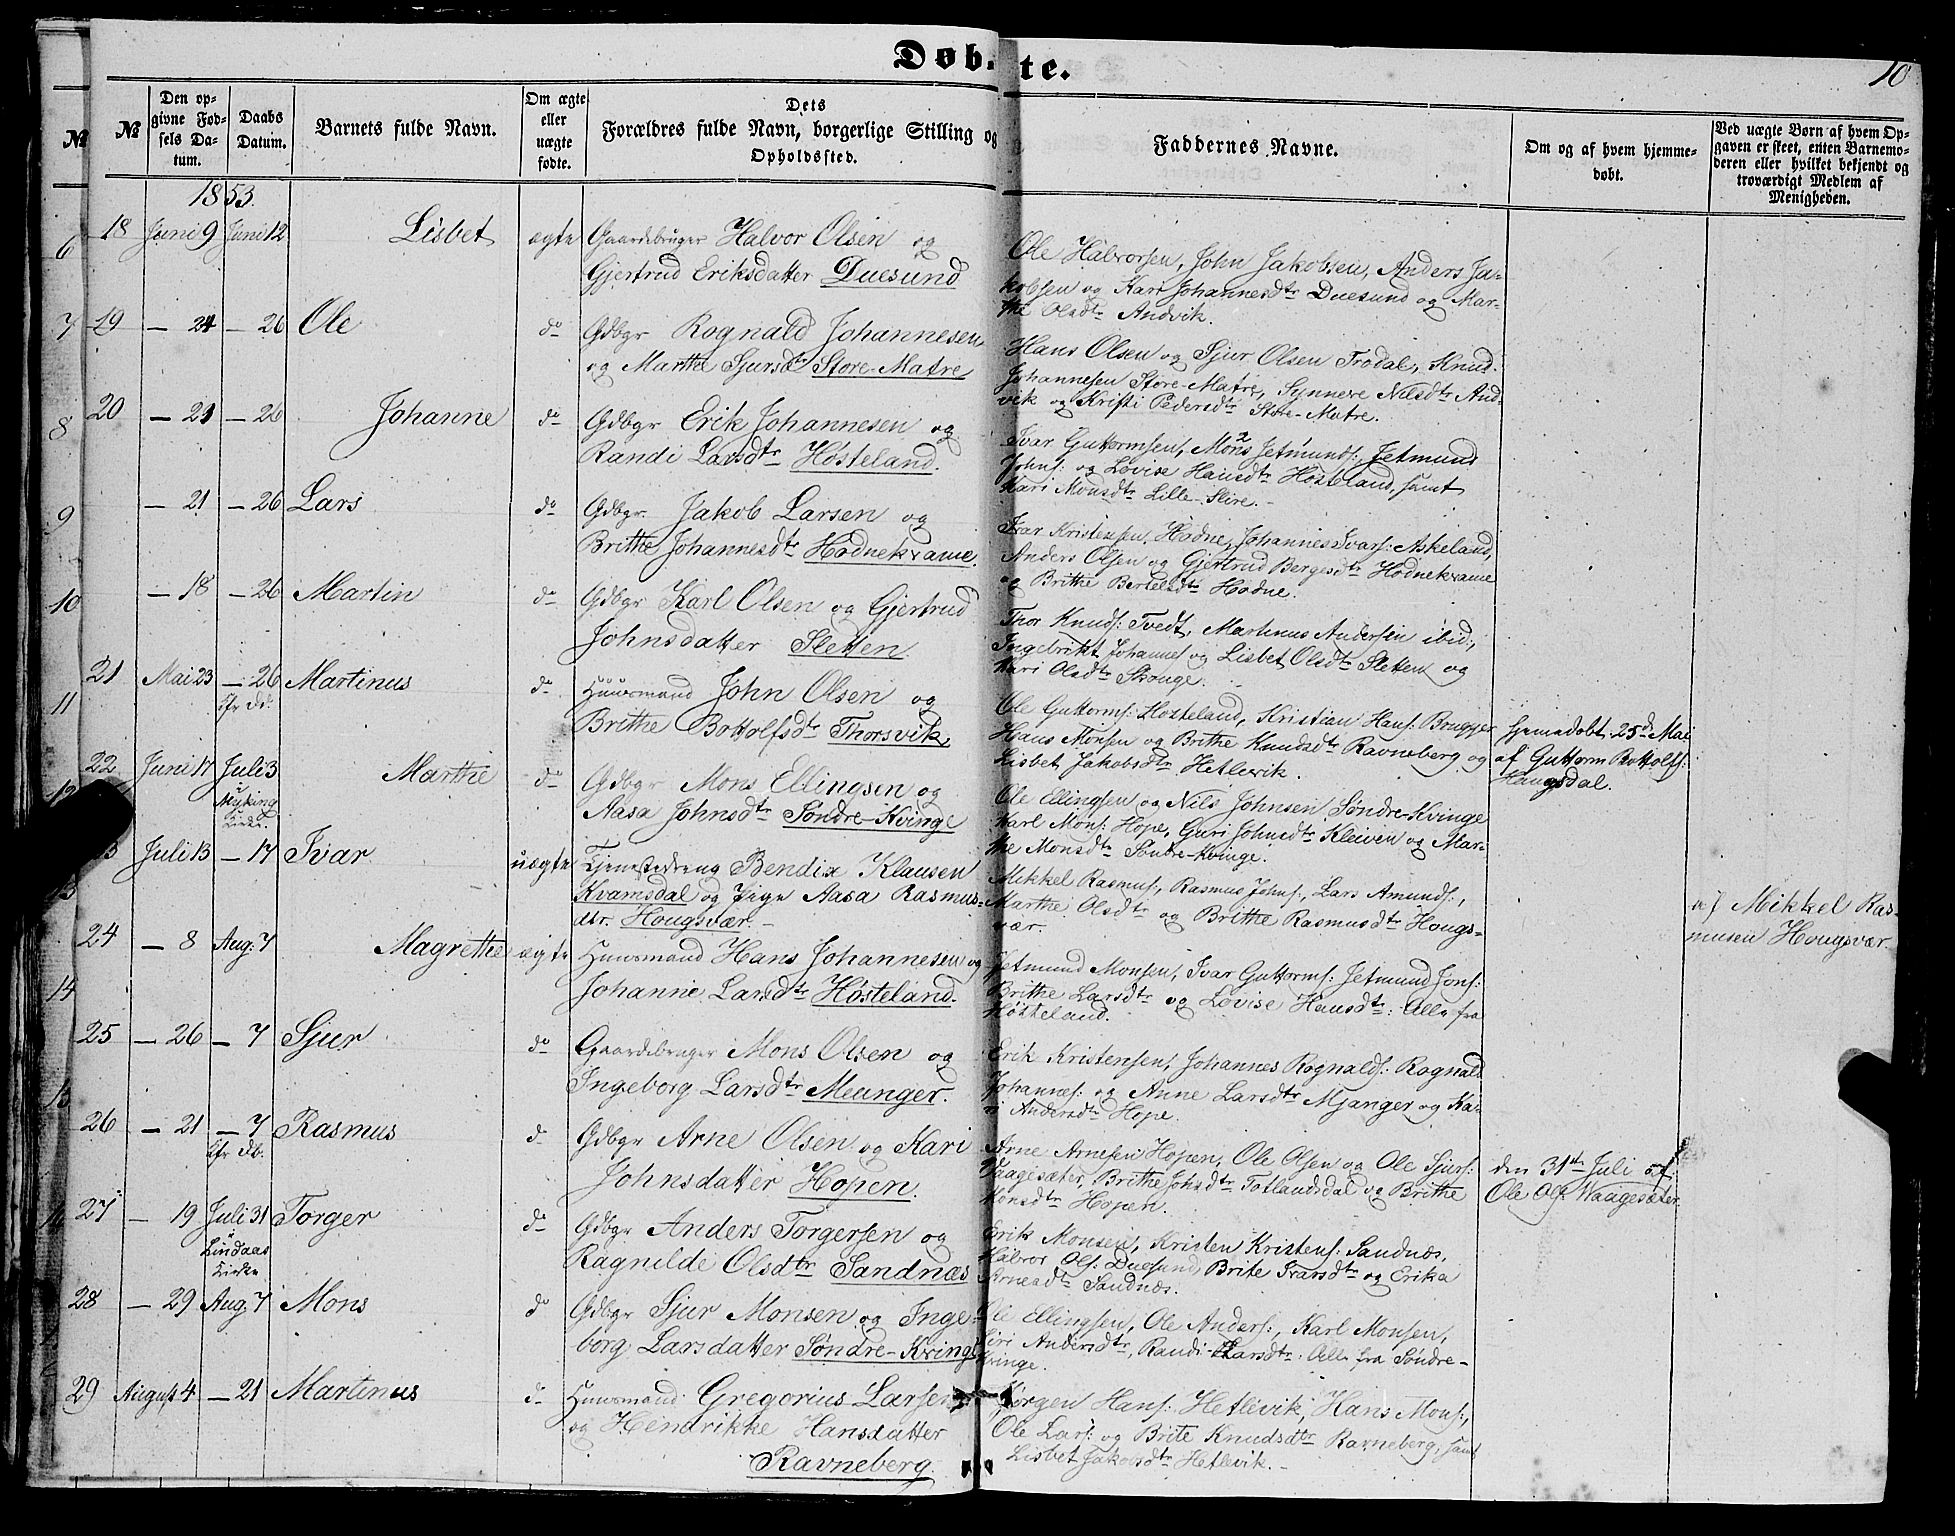 Døb-te.
10
№
№
Den op-
givne Fød-
sels Da-
tum.
Daabs
Datum.
Barnets fulde Navn.
Om ægte
eller
uægte
fødte.
Dets
Forældres fulde Navn, borgerlige Stilling og
Opholdssted.
Faddernes Navne.
Om og af hvem hjemme-
døbt.
Ved uægte Børn af hvem Op-
gaven er skeet, enten Barnemo-
deren eller hvilket bekjendt og
troværdigt Medlem af
Menigheden.
1853.
18 Juni 9 Juni 12 Lisbet ægte Gaardsbruger Halvor Olsen og
Gjertrud Eriksdatter Duesund
Ole Halvorsen, John Jakobsen, Anders Ja-
kobsen og Kari Johannesdtr Duesund og Mar-
the Olsdtr Andvik.
19 — 24 — 26 Ole do Gdbgr Rognald Johannesen
og Marthe Sjursdtr Store-Matre
Hans Olsen og Sjur Olsen Trodal, Knud
Johannesen Store-Matre, Synneve Nilsdtr And-
vik og Kristi Pedersdtr Store-Matre.
20 — 21 — 26 Johanne do Gdbgr Erik Johannesen og
Randi Larsdtr Høsteland.
Ivar Guttormsen, Mons Jetmunds: Jetmund
Johns: og Lovise Hansdtr Høsteland, samt
Kari Monsdtr Lille-Slire.
— 21 — 26 Lars do Gdbgr. Jakob Larsen og
Brithe Johannesdtr Hodnekvame.
Ivar Kristensen, Hodne, Johannes Ivars: Askeland,
Anders Olsen og Gjertrud Bergesdtr Hodnekvame
og Brithe Bertelsdtr Hodne.
— 18 — 26 Martin do Gdbgr Karl Olsen og Gjertrud
Johnsdatter Sletten
Thor Knuds: Tvedt, Martinus Andersen ibid:,
Ingebrikt Johannes og Lisbet Olsdtr Sletten og
Kari Olsdtr Skouge.
21 Mai 23 — 26 Martinus do Huusmand John Olsen og
Brithe Bottolfsdtr Thorsvik,
Ole Guttorms: Hosteland, Kristian Hans: Brugger
Hans Monsen og Brithe Knudsdtr Ravneberg og
Lisbet Jakobsdtr Hetlevik.
hjemmedøbt 25d Mai
af Guttorm Bottolfs:
Hougsdal.
22 Juni 17 Juli 3 Marthe do Gdbgr Mons Ellingsen og
Myking
Kirke.
Aasa Johnsdtr Søndre-Kvinge
Ole Ellingsen og Nils Johnsen Søndre-Kvinge
Karl Mons: Hope, Guri Johnsdtr Kleiven og Mar-
the Monsdtr Søndre-Kvinge.
Juli 13 — 17 Ivar uægte Tjenestedreng Bendix Klausen
Kvamsdal og Pige Aasa Rasmus-
dtr. Hougsvær.
Mikkel Rasmus:, Rasmus Johns:, Lars Amunds:,
Marthe Olsdtr og Brithe Rasmusdtr Hougs-
vær.
Mikkel Ras-
musen Hougsvær
24 — 8 Aug. 7 Magrethe ægte Huusmand Hans Johannesen og
Johanne Larsdtr Høsteland.
Jetmund Monsen, Ivar Guttorms: Jetmund Jons:
Brithe Larsdtr og Lovise Hansdtr: Alle fra
Høsteland.
25 — 26 — 7 Sjur do Gaardsbruger Mons Olsen og
Ingeborg Larsdtr Meanger.
Erik Kristensen, Johannes Rognalds: Rognald
Johannes: og Anne Larsdtr Mjanger og Ka-
ri Andersdtr Hope.
26 — 21 — 7 Rasmus do Gdbgr Arne Olsen og Kari
Johnsdatter Hopen.
Arne Arnesen Hopen, Ole Olsen og Ole Sjurs:
Vaagesæter, Brithe Johsdtr Totlandsdal og Brithe
Monsdtr Hopen.
den 31te Juli af
Ole Ols: Waagesæter
27 — 19 Juli 31 Torger do Gdbgr Anders Torgersen og
Lindaas
Kirke
Ragnilde Olsdtr Sandnæs
Erik Monsen, Kristen Kristens: Sandnæs,
Halvor Ols: Duesund, Brite Ivarsdtr og Erika
Arnesdtr Sandnæs.
28 — 29 Aug. 7 Mons do Gdbgr Sjur Monsen og Inge-
borg Larsdatter Søndre-Kvinge
Ole Ellingsen, Ole Anders:, Karl Monsen,
Siri Andersdtr, Randi Larsdtr: Alle fra Søndre-
Kvinge.
29 August 4 — 21 Martinus do Huusmand Gregorius Larsen
og Hendrikke Hansdatter
Ravneberg
Jørgen Hans: Hetlevik, Hans Mons:,
Ole Lars: og Brite Knudsdtr Ravneberg, samt
Lisbet Jakobsdtr Hetlevik.
6
7
8
9
10
11
12
13
14
15